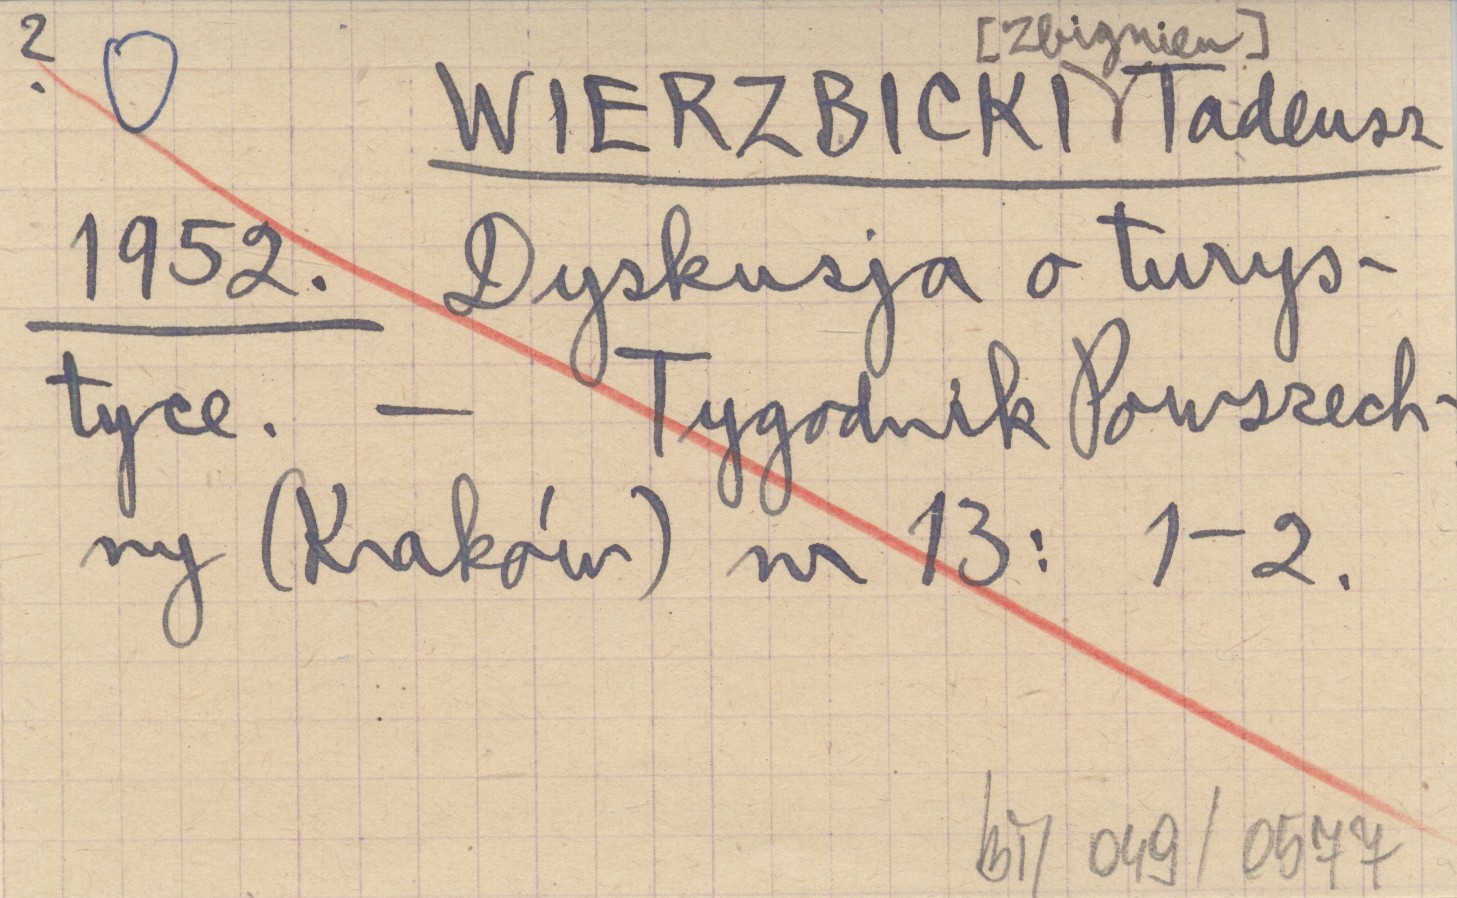 ?
[Zbigniew]
WIERZBICKI Tadeusz
1952. Dyskusja o turys-
tyce. — Tygodnik Powszech-
ny (Kraków) nr 13: 1-2.
049/0577